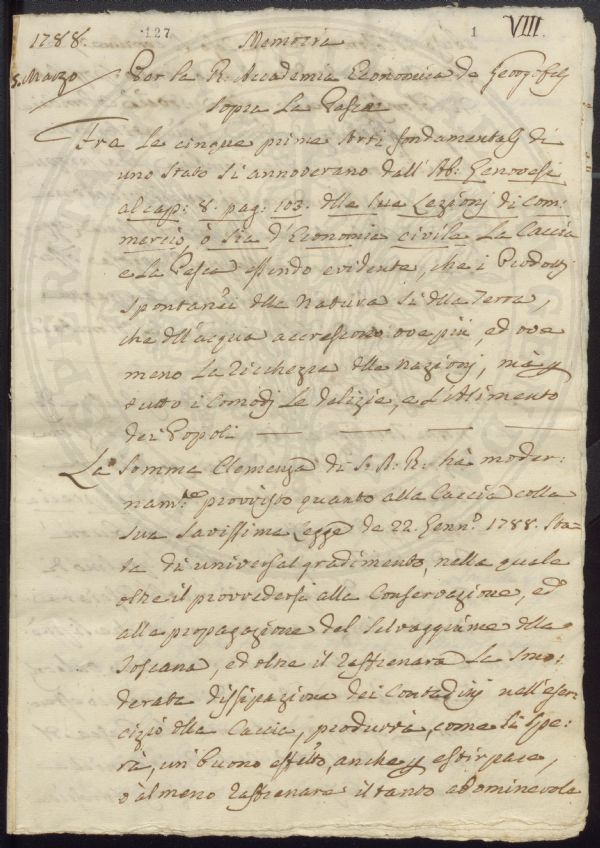 1788. 127 Memoria 1 VIII.
5. Marzo Per la R. Accademia Economica de Georgofili
sopra la Pesca
Fra le cinque prime Arti fondamentali di
uno stato si annoverano dall' Ab: Genovesi
al cap: 8. pag: 103. della sua Lezioni di com:
mercio, ò sia d'Economia civile la Caccia
e la Pesca essendo evidente, che i Prodotti
spontanei della natura sì della Terra,
che dell'acqua accrescono ove più, ed ove
meno la Ricchezza delle nazioni, mà
tutto i Comodi le delizie, e l'Alimento
dei Popoli
La Somma Clemenza di S. A. R. hà moder:
nam.te provvisto quanto alla Caccia colla
sua savissima Legge de 22. Genn.o 1788. sta=
ta di universal gradimento, nella quale
oltre il provvedersi alla Conservazione, ed
alla propagazione del selvaggiume della
Toscana, ed oltre il raffrenare la smo:
derata dissipazione dei Contadini nell'eser:
cizio della Caccia, produrrà, come si spe:
ra, un buono effetto, anche estirpare,
ò almeno raffrenare il tanto abominevole